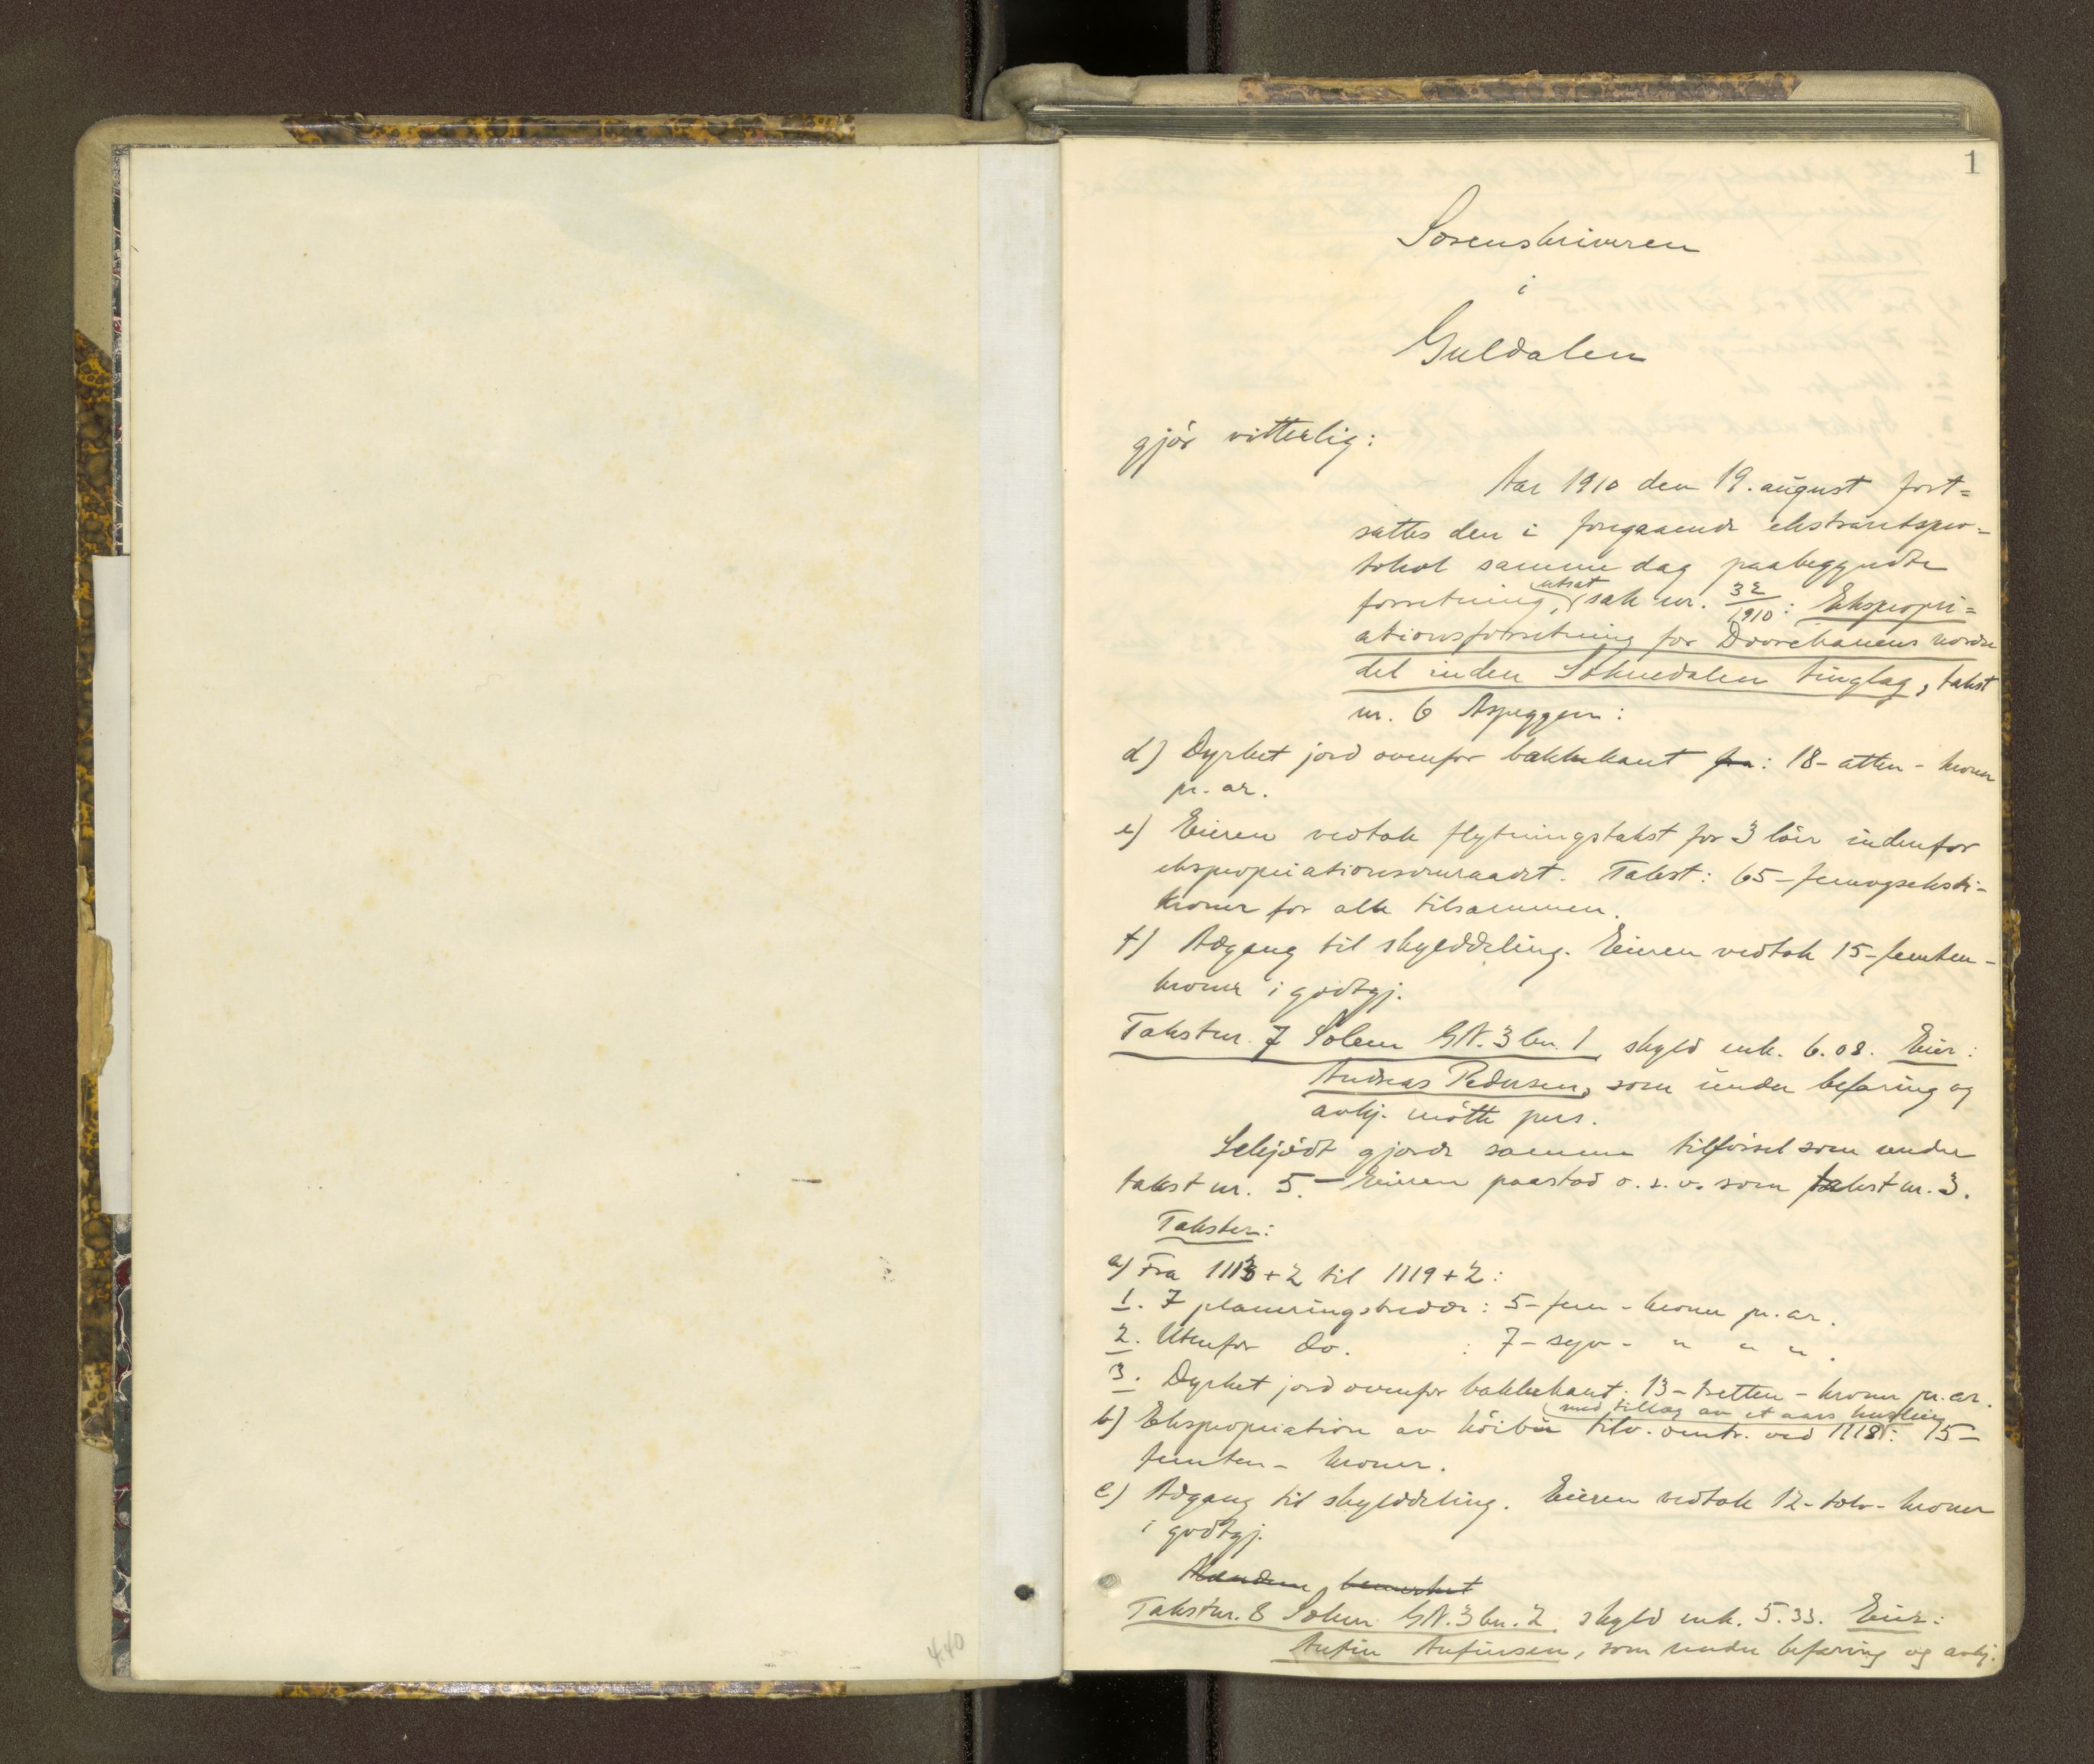 1
Sorenskriveren
i
Guldalen
gjör vitterlig:
Aar 1910 den 19. august fort=
sattes den i foregaaende ekstraretspro-
tokol samme dag paabegyndte
utsat
forretning, sak nr. 32/1910: Ekspropri=
ationsforretning for Dovrebanens nordre
del inden Soknedalen tinglag, takst
nr. 6 Aspeggen:
d) Dyrket jord ovenfor bakkekant fra: 18-atten-kroner
pr. ar.
e) Eieren vedtok flytningstakst for 3 löer indenfor
ekspropriationsomraadet. Takst: 65-femogseksti-
kroner for alle tilsammen.
f) Adgang til skylddeling. Eieren vedtok 15-femten-
kroner i godtgj.
Takstnr. 7 Solem GN. 3 bn. 1, skyld mk. 6.08. Eier:
Andreas Pedersen, som under befaring og
avhj. mötte pers.
Selejödt gjorde samme tilförsel som under
takst nr. 5. - Eieren paastod o.s.v. som takst nr. 3.
Takster:
a) Fra 1113+2 til 1119+2:
1. I planeringsbredde: 5-fem-kroner pr. ar.
2. Utenfor do. : 7-syv- " " ".
3. Dyrket jord ovenfor bakkekant: 13-tretten-kroner pr. ar.
med tillæg av et aars husleie
b) Ekspropriation av höibu tilv. omtr. ved 1118: 15-
femten- kroner.
c) Adgang til skylddeling. Eieren vedtok 12-tolv-kroner
i godtgj.
bemerket
Takstnr. 8 Solem GN. 3 bn. 2, skyld mk. 5.33. Eier:
Anfin Anfinsen, som under befaring og avhj.
4.40